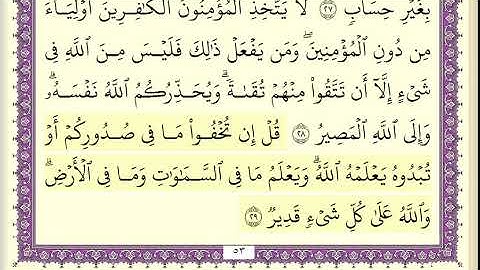 بِغَيۡرِ حِسَابٖ ٢٧ لَّا يَتَّخِذِ ٱلۡمُؤۡمِنُونَ ٱلۡكَٰفِرِينَ أَوۡلِيَآءَ
مِن دُونِ ٱلۡمُؤۡمِنِينَۖ وَمَن يَفۡعَلۡ ذَٰلِكَ فَلَيۡسَ مِنَ ٱللَّهِ فِي
شَيۡءٍ إِلَّآ أَن تَتَّقُواْ مِنۡهُمۡ تُقَىٰةٗۗ وَيُحَذِّرُكُمُ ٱللَّهُ نَفۡسَهُۥۗ
وَإِلَى ٱللَّهِ ٱلۡمَصِيرُ ٢٨ قُلۡ إِن تُخۡفُواْ مَا فِي صُدُورِكُمۡ أَوۡ
تُبۡدُوهُ يَعۡلَمۡهُ ٱللَّهُۗ وَيَعۡلَمُ مَا فِي ٱلسَّمَٰوَٰتِ وَمَا فِي ٱلۡأَرۡضِۗ
وَٱللَّهُ عَلَىٰ كُلِّ شَيۡءٖ قَدِيرٞ ٢٩
٥٣